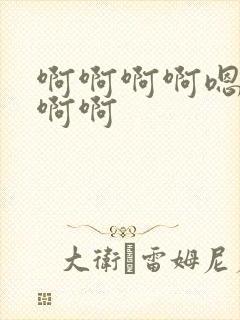 啊啊啊啊嗯
啊啊
大衛雷姆尼